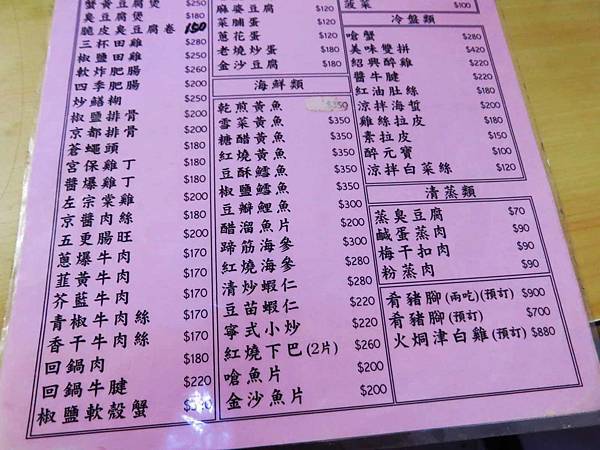 蟹黃豆腐煲 $250
臭豆腐煲
脆皮臭豆腐卷 150
三杯田雞 $280
椒鹽田雞 $280
軟炸肥腸 $260
四季肥腸 $200
炒鱔糊 $200
椒鹽排骨 $200
京都排骨 $200
蒼蠅頭 $180
宮保雞丁 $180
醬爆雞丁 $180
左宗棠雞 $200
京醬肉絲 $180
五更腸旺 $200
蔥爆牛肉 $170
韮黃牛肉 $170
芥藍牛肉 $170
青椒牛肉絲 $170
香干牛肉絲 $170
回鍋肉 $180
回鍋牛腱 $220
椒鹽軟殼蟹
麻婆豆腐 $120
菜脯蛋 $120
蔥花蛋 $120
老燒炒蛋 $180
金沙豆腐 $180
海鮮類
乾煎黃魚 $350
雪菜黃魚 $350
糖醋黃魚 $350
紅燒黃魚 $350
豆酥鱈魚 $350
椒鹽鱈魚 $350
豆瓣鯉魚 $300
醋溜魚片 $200
蹄筋海參 $280
紅燒海參 $280
清炒蝦仁 $200
豆苗蝦仁 $200
寧式小炒 $200
紅燒下巴(2片) $260
嗆魚片 $200
金沙魚片 $200
菠菜 $100
冷盤類
嗆蟹 $280
美味雙拼 $420
紹興醉雞 $220
醬牛腱 $220
紅油肚絲 $200
涼拌海蜇 $200
雞絲拉皮 $180
素拉皮 $150
醉元寶 $100
涼拌白菜絲 $120
清蒸類
蒸臭豆腐 $70
鹹蛋蒸肉 $90
梅干扣肉 $90
粉蒸肉 $90
肴豬腳(兩吃)(預訂) $900
肴豬腳(預訂) $700
火焗津白雞(預訂) $880